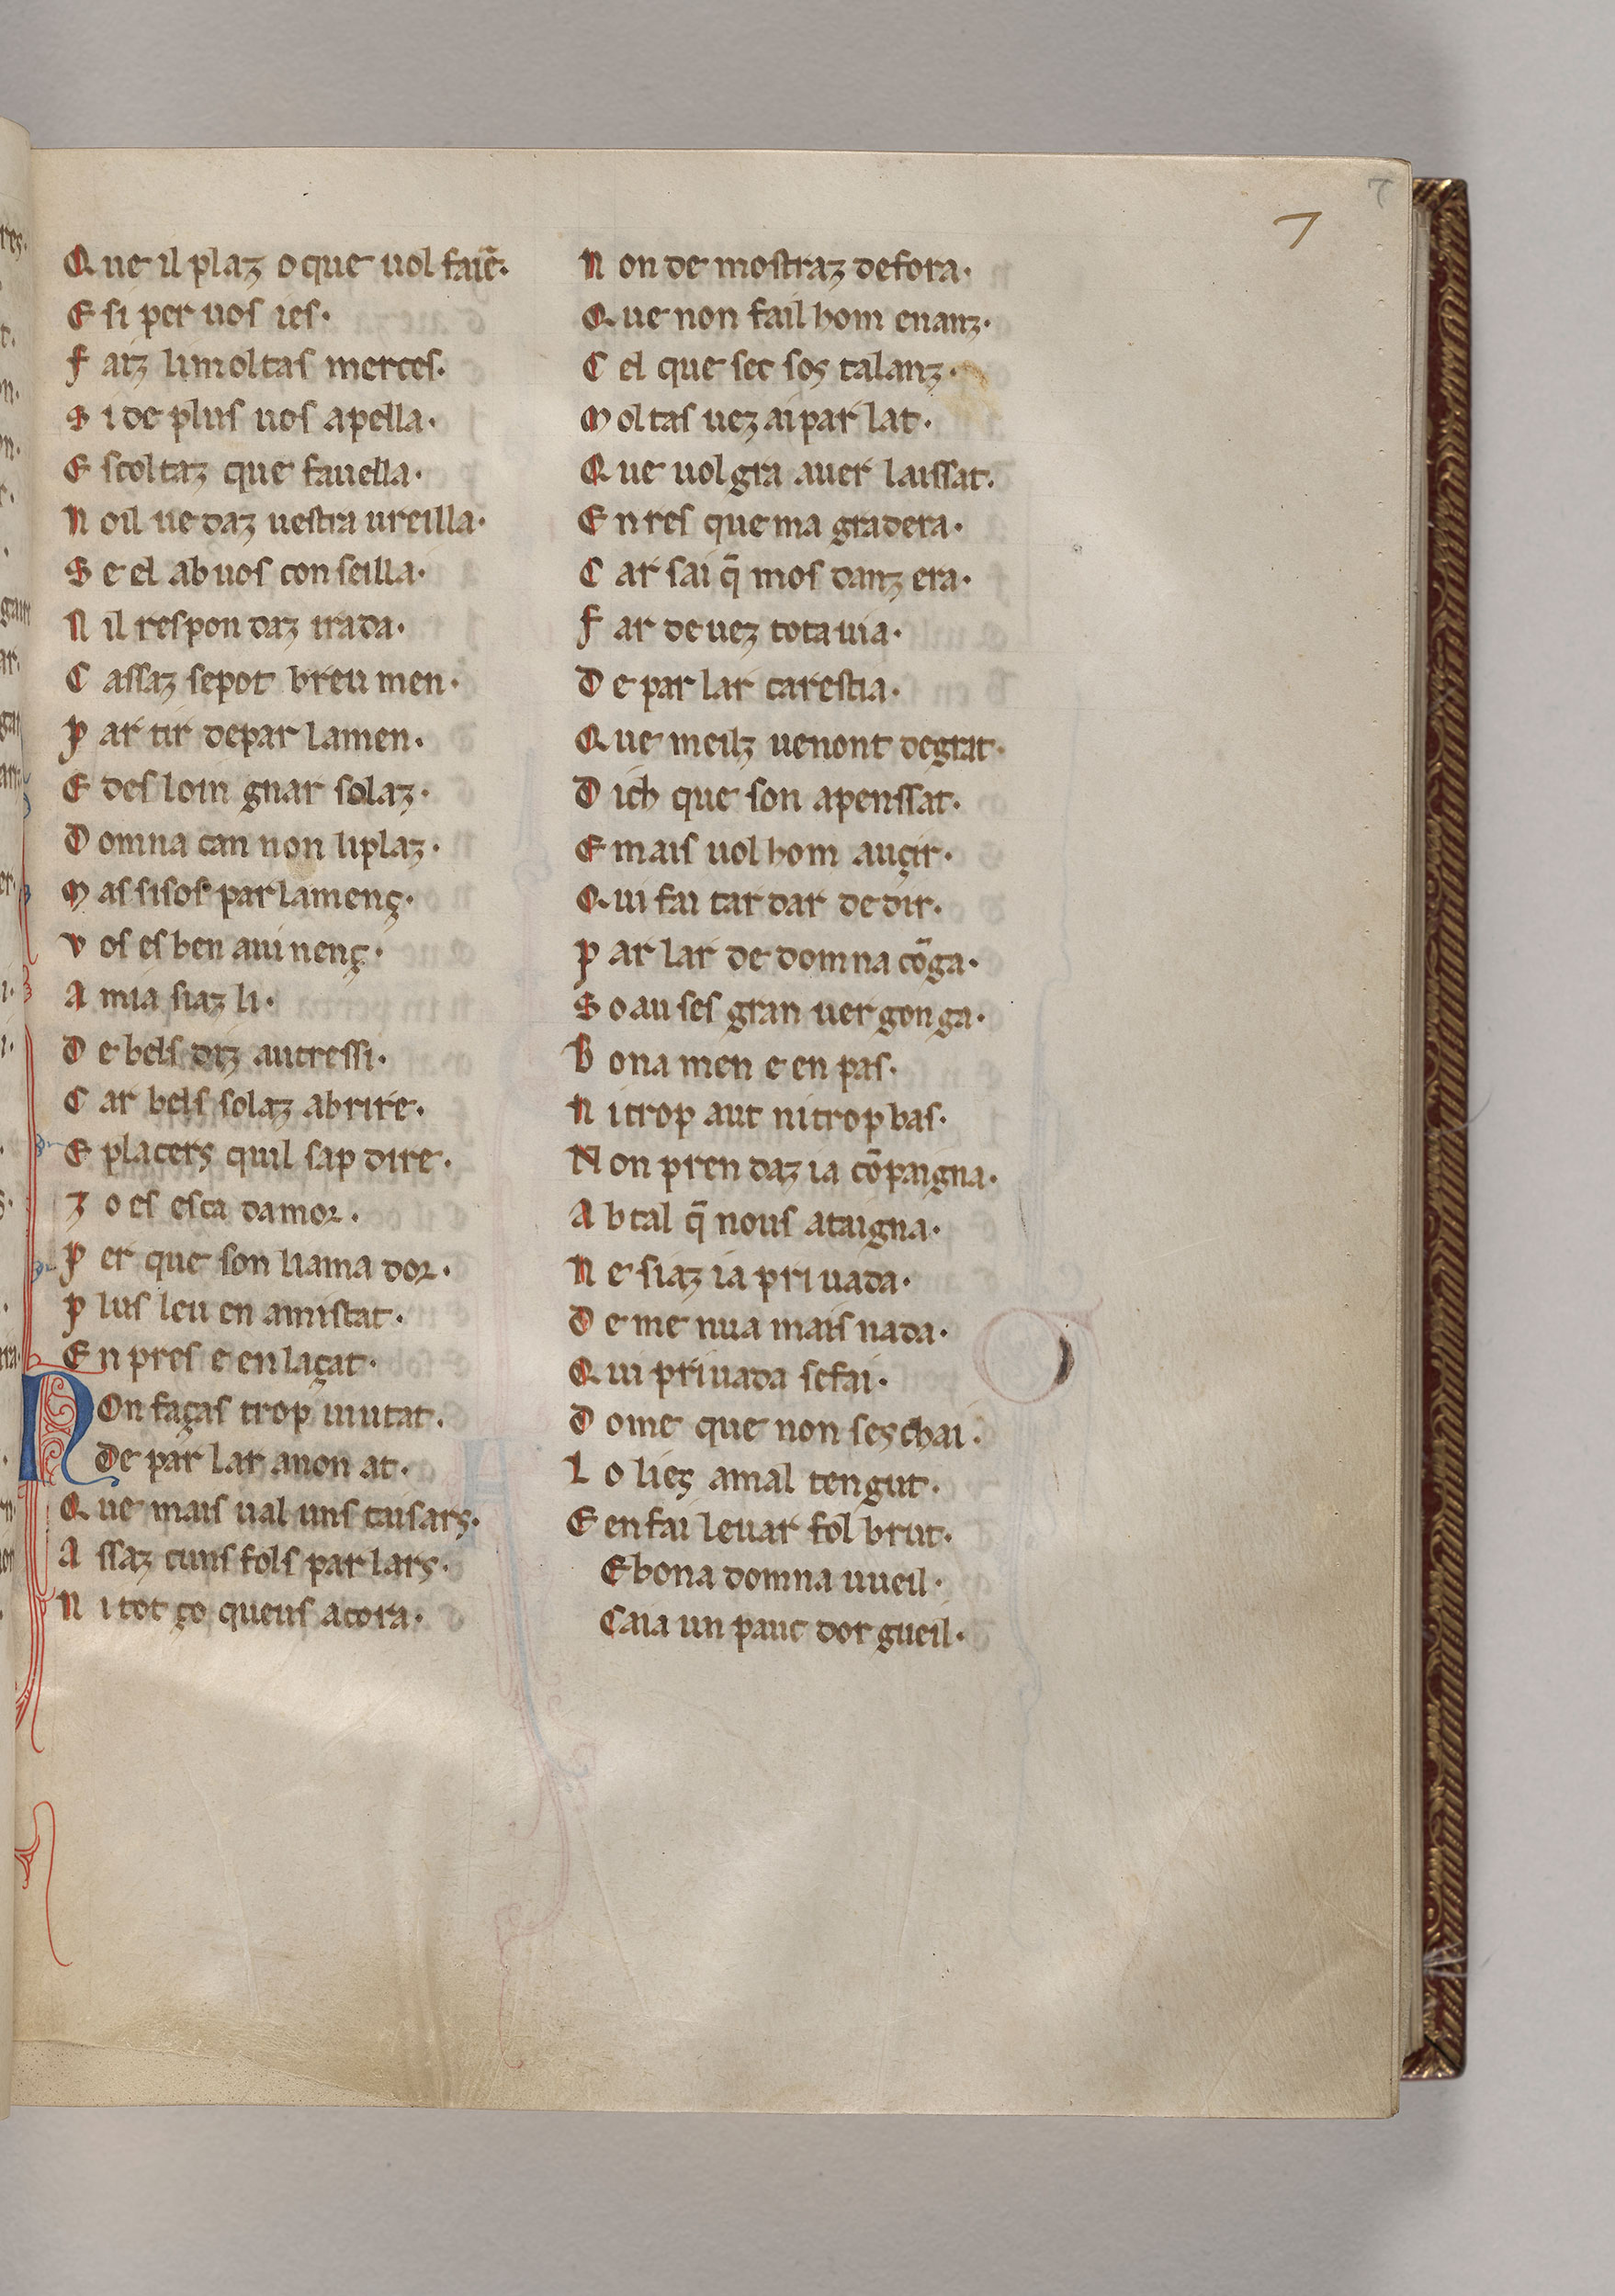 7
7
Que il plaz o que uol faiẽ·
E si per uos ies·
Faiz li moltas merces·
Si de plus uos apella·
Escoltaz que fauella·
Noil uedaz uestra ureilla·
Se el ab uos conseilla·
Nil respondaz irada·
C assaz se pot breumen·
Partir de parlamen·
E desloingnar solaz·
Domna can non li plaz·
Mas si sos parlamenç·
Vos es ben auinenç·
Amia siaz li·
De bels diz autressi·
Car bels solaz ab rire·
E placers quil sap dire·
Zo es esca damor·
Per que son li amador·
Plus leu en amistat·
En pres e enlaçat·
Non façaſ trop uiutat·
De parlar a non at·
Que mais ual uns cusars·
Assaz cuns fols parlars·
Ni tot ço queus acora·
Non demostraz defora·
Que non fail hom enanz·
Cel que sec sos talanz·
Moltas uez ai parlat·
Que uolgra auer laissat·
En res que magradera·
Car sai q̃ mos danz era·
Far deuez tota uia·
De parlar carestia·
Que meilz uenont de grat·
Dich que son apenssat·
E mais uol hom auçir·
Qui fai tardar de dir·
Parlar de domna cõga·
Soau ses gran uergonga·
Bonamen e en pas·
Ni trop aut ni trop bas·
Non prendaz ia cõpaigna·
Ab tal q̃ nous ataigna·
Ne siaz ia priuada·
De menua maisnada·
Qui priuada se fai·
Dome que non seschai·
Lo lieç a mal tengut·
E en fai leuar fol brut·
E bona domna uueil·
Caia un pauc dorgueil·